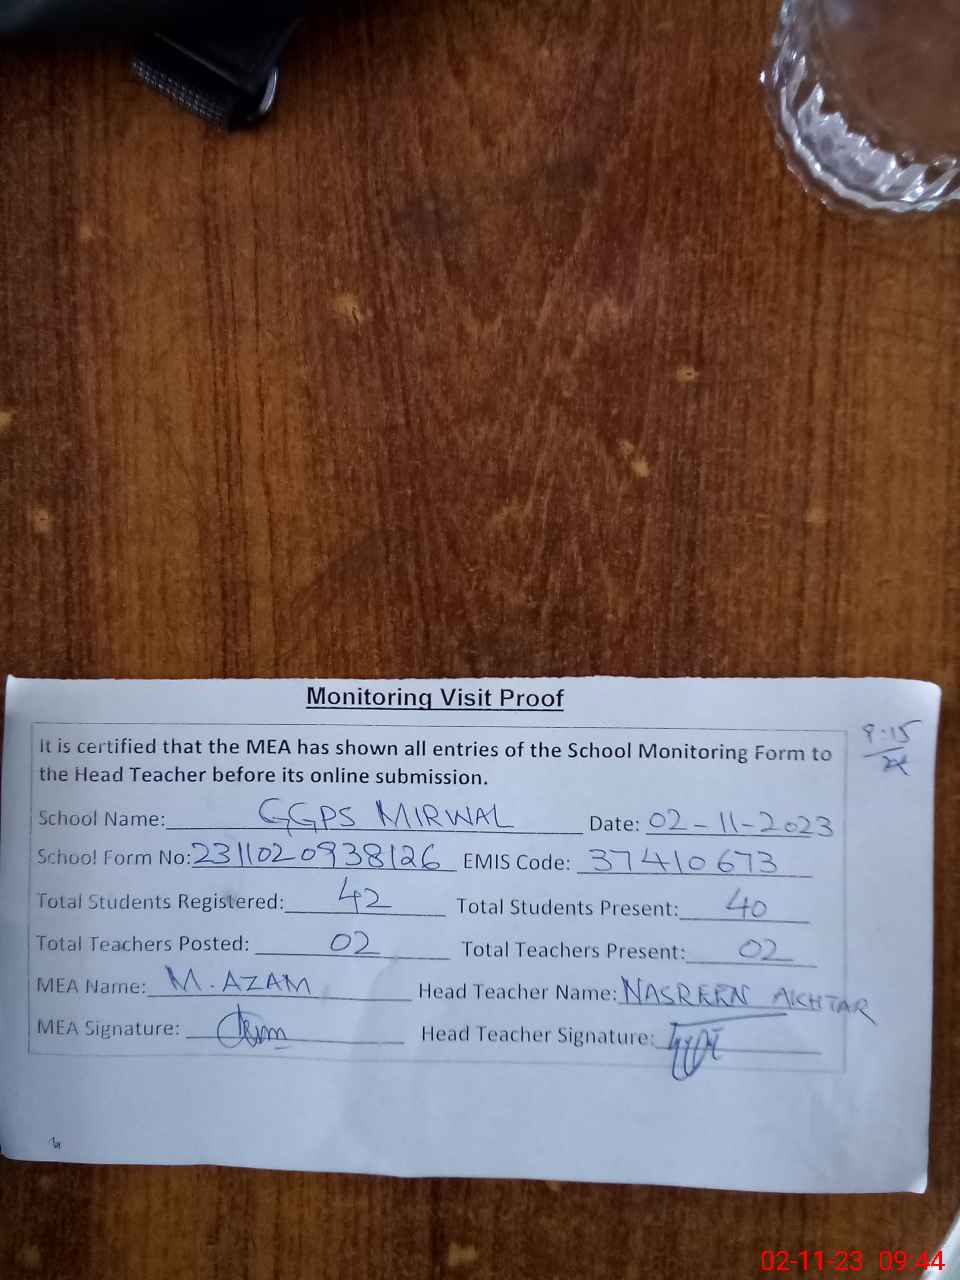 Monitoring Visit Proof
It is certified that the MEA has shown all entries of the School Monitoring Form to
the Head Teacher before its online submission.
School Name: GGPS MIRWAL Date: 02-11-2023
School Form No: 2311020938126 EMIS Code: 37410673
Total Students Registered: 42 Total Students Present: 40
Total Teachers Posted: 02 Total Teachers Present: 02
MEA Name: M. AZAM Head Teacher Name: NASREEN AKHTAR
MEA Signature: Head Teacher Signature:
02-11-23 09:44